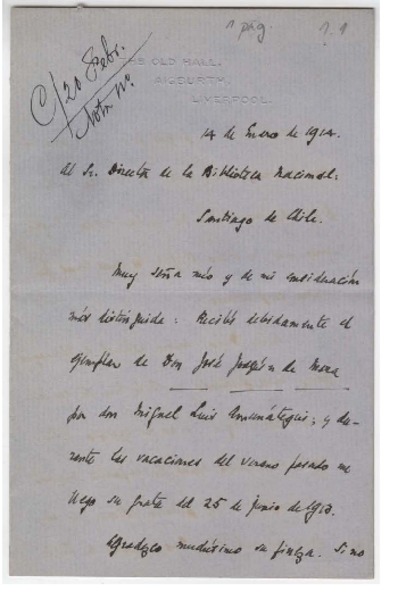 1 pág.
1.1
C/20 Febr.
Nota Nº.
THE OLD HALL.
AIGBURTH.
LIVERPOOL.
14 de Enero de 1914.
Al Sr. Director de la Biblioteca Nacional:
Santiago de Chile.
Muy señor mío y de mi consideración
más distinguida: Recibí debidamente el
ejemplar de Don José Joaquín de Mora
por don Miguel Luis Amunátegui; y du-
rante las vacaciones del verano pasado me
llegó su grata del 25 de Junio de 1913.
Agradezco muchísimo su fineza. Si no